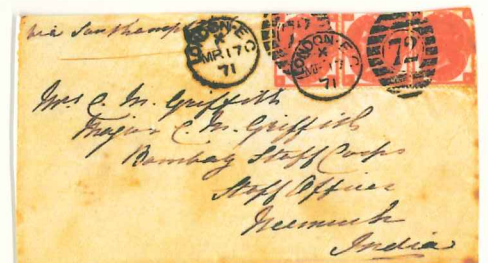 via Southampton
LONDON · E.C
X
MR 17
71
LONDON · E.C
X
MR 17
71
72
Mrs C. M. Griffith
Major C. M. Griffith
Bombay Staff Corps
Staff Officer
Neemuch
India